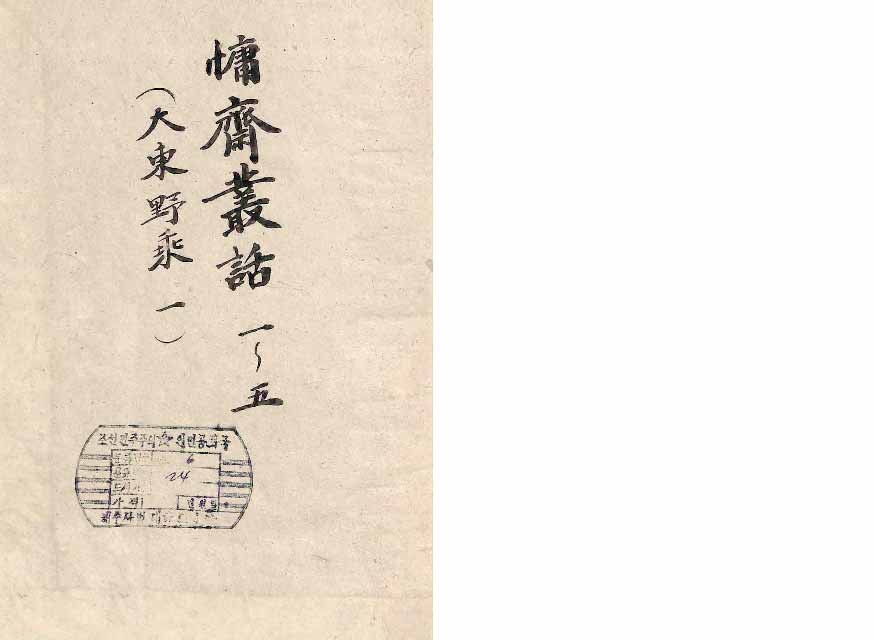 慵齋叢話 一~五
(大東野乘 一)
조선민주주의 인민공화국
6
24